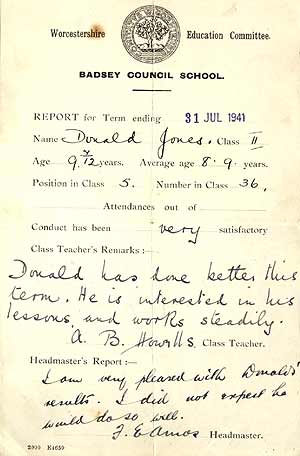 Worcestershire Education Committee.
BADSEY COUNCIL SCHOOL.
REPORT for Term ending 31 JUL 1941
Name Donald Jones. Class II
Age 9 7/12 years. Average age 8·9 years.
Position in Class 5. Number in Class 36.
Attendances out of
Conduct has been very satisfactory
Class Teacher's Remarks :—
Donald has done better this
term. He is interested in his
lessons and works steadily.
A. B. Howells, Class Teacher.
Headmaster's Report :—
I am very pleased with Donald's
results. I did not expect he
would do so well.
F. E Amos Headmaster.
2000 E4650